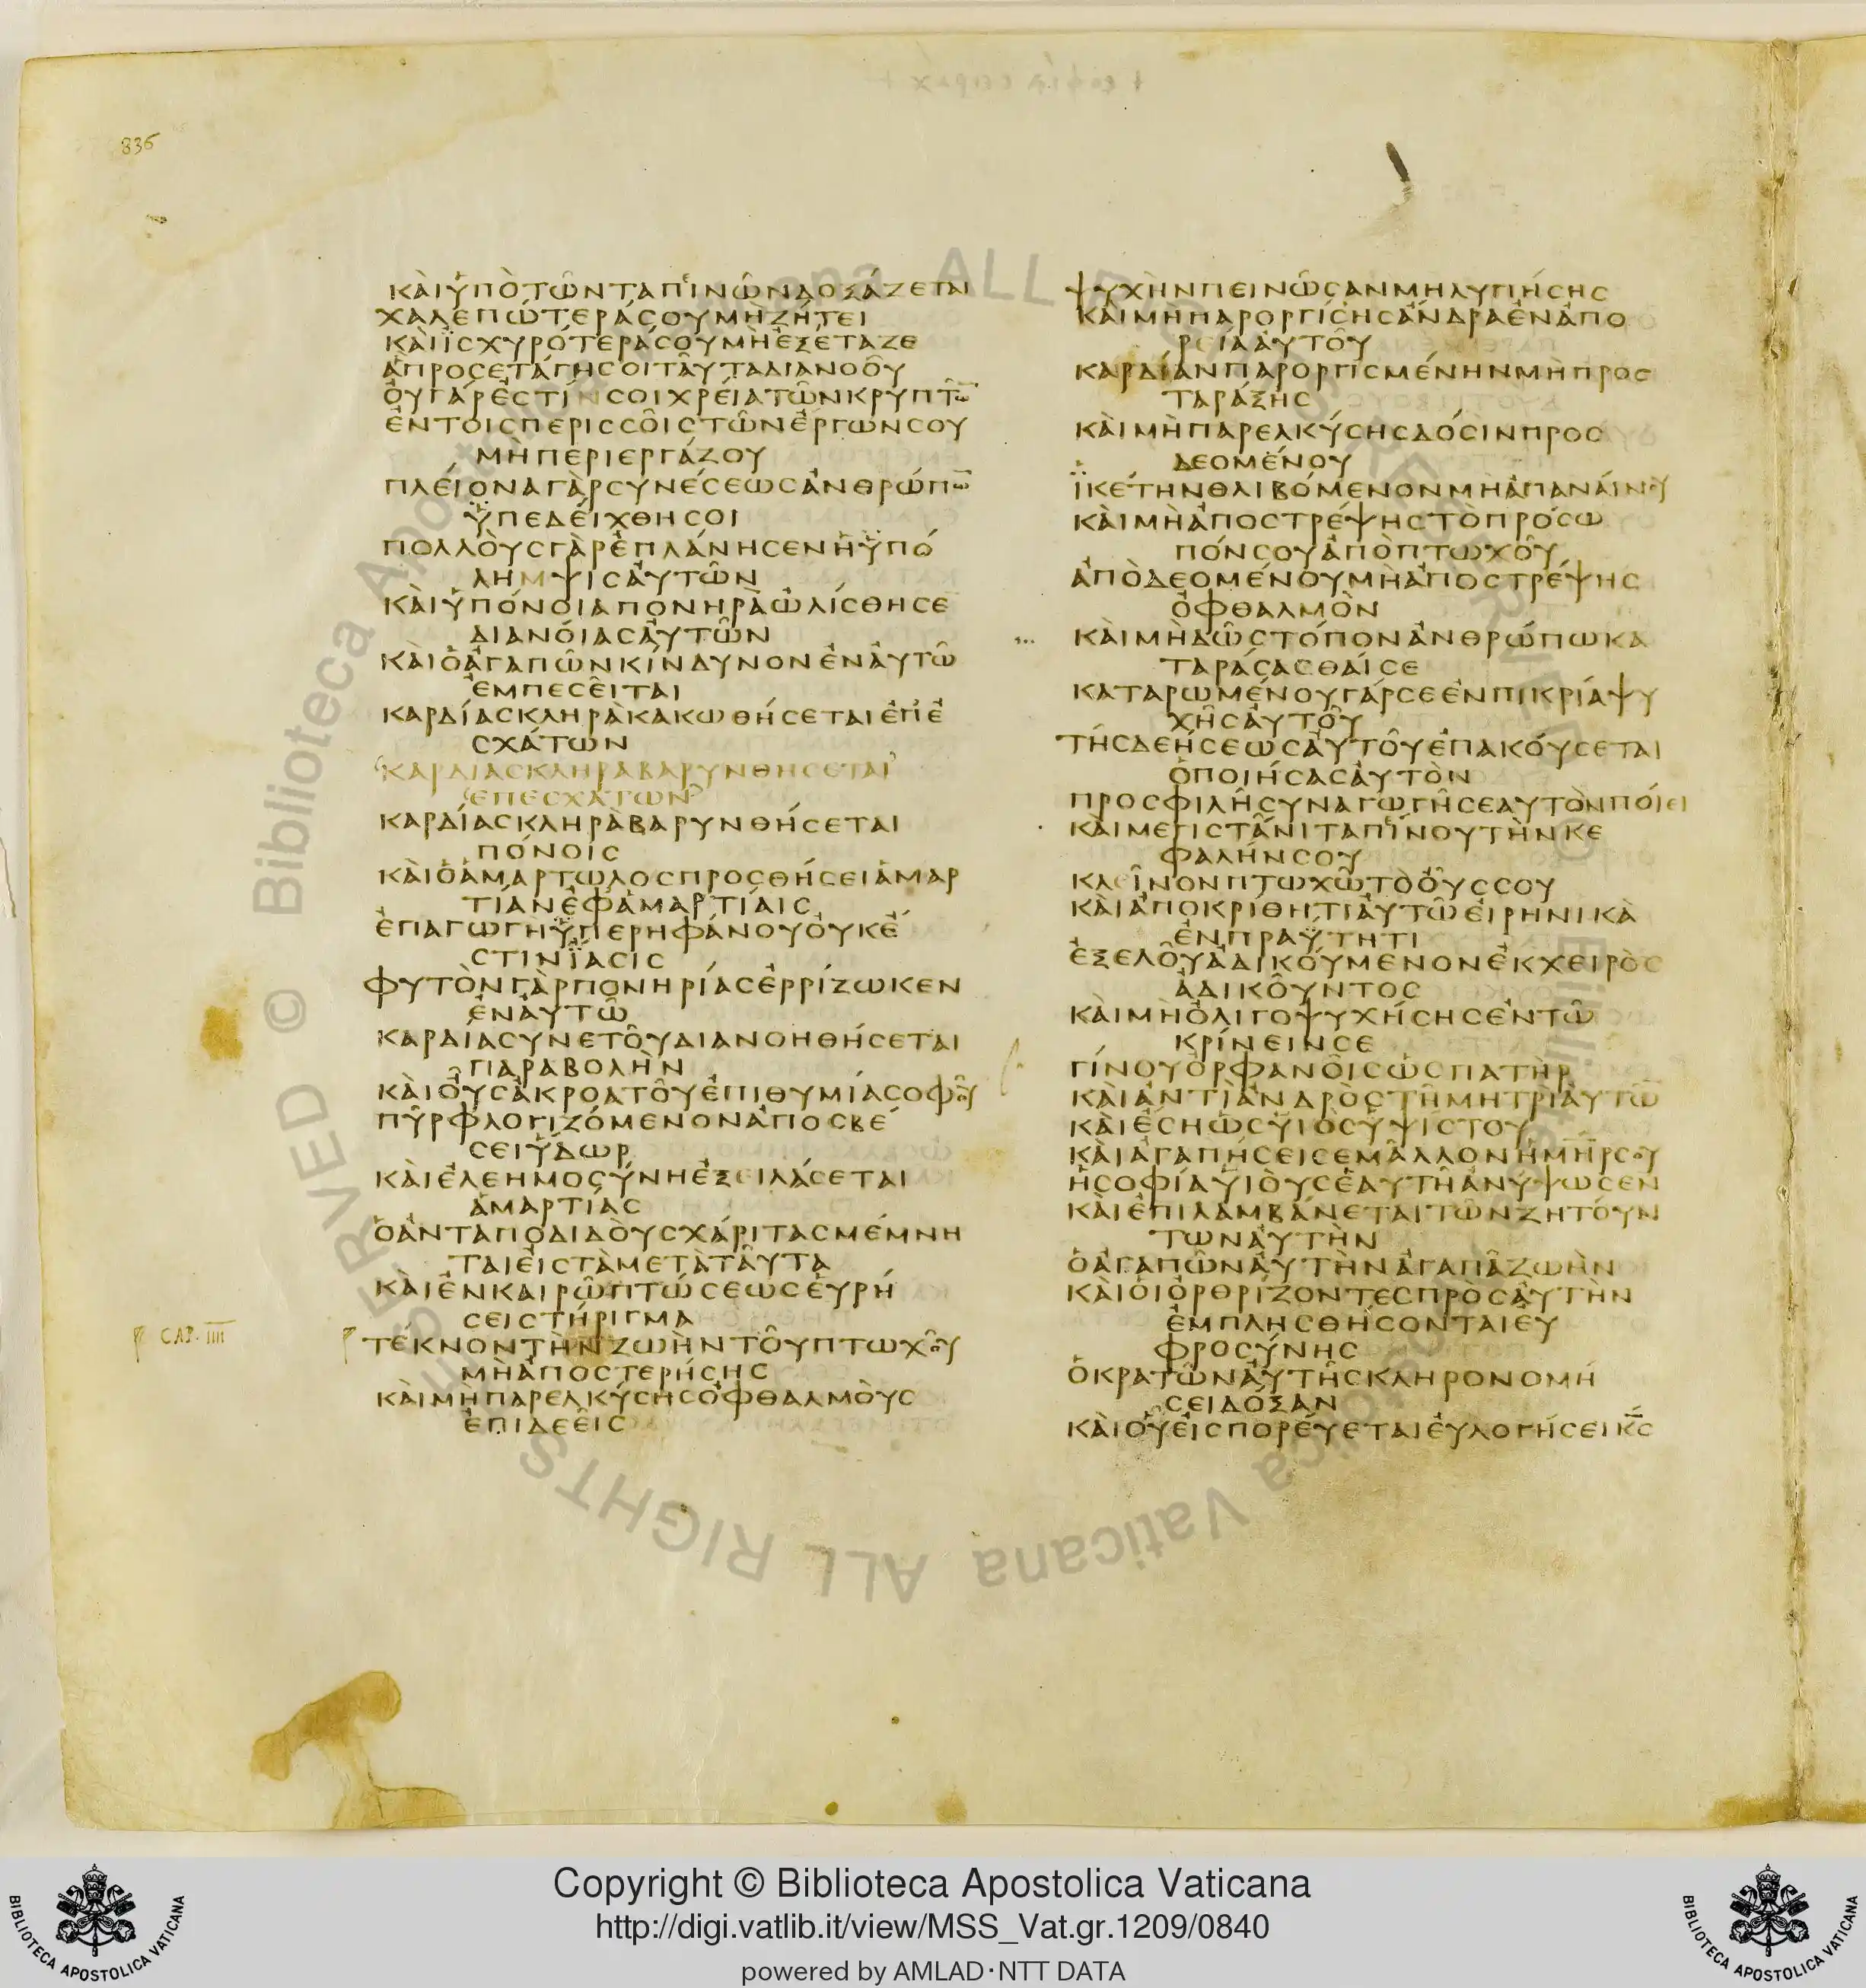 836
ΚΑΙΥΠΟΤΩΝΤΑΠΙΝΩΝΔΟΞΑΖΕΤΑΙ
ΧΑΛΕΠΩΤΕΡΑΣΟΥΜΗΖΗΤΕΙ
ΚΑΙΪΣΧΥΡΟΤΕΡΑΣΟΥΜΗΕΞΕΤΑΖΕ
ΑΠΡΟΣΕΤΑΓΗΣΟΙΤΑΥΤΑΔΙΑΝΟΟΥ
ΟΥΓΑΡΕΣΤΙΝΣΟΙΧΡΕΙΑΤΩΝΚΡΥΠΤΩ̅
ΕΝΤΟΙΣΠΕΡΙΣΣΟΙΣΤΩΝΕΡΓΩΝΣΟΥ
ΜΗΠΕΡΙΕΡΓΑΖΟΥ
ΠΛΕΙΟΝΑΓΑΡΣΥΝΕΣΕΩΣΑΝΘΡΩΠΩ̅
ΫΠΕΔΕΙΧΘΗΣΟΙ
ΠΟΛΛΟΥΣΓΑΡΕΠΛΑΝΗΣΕΝΗΫΠΟ
ΛΗΜΨΙΣΑΥΤΩΝ
ΚΑΙΥΠΟΝΟΙΑΠΟΝΗΡΑΩΛΙΣΘΗΣΕ
ΔΙΑΝΟΙΑΣΑΥΤΩΝ
ΚΑΙΟΑΓΑΠΩΝΚΙΝΔΥΝΟΝΕΝΑΥΤΩ
ΕΜΠΕΣΕΙΤΑΙ
ΚΑΡΔΙΑΣΚΛΗΡΑΚΑΚΩΘΗΣΕΤΑΙΕΠΕ
ΣΧΑΤΩΝ
ΚΑΡΔΙΑΣΚΛΗΡΑΒΑΡΥΝΘΗΣΕΤΑΙ
ΕΠΕΣΧΑΤΩΝ
ΚΑΡΔΙΑΣΚΛΗΡΑΒΑΡΥΝΘΗΣΕΤΑΙ
ΠΟΝΟΙΣ
ΚΑΙΟΑΜΑΡΤΩΛΟΣΠΡΟΣΘΗΣΕΙΑΜΑΡ
ΤΙΑΝΕΦΑΜΑΡΤΙΑΙΣ
ΕΠΑΓΩΓΗΫΠΕΡΗΦΑΝΟΥΟΥΚΕ
ΣΤΙΝΪΑΣΙΣ
ΦΥΤΟΝΓΑΡΠΟΝΗΡΙΑΣΕΡΡΙΖΩΚΕΝ
ΕΝΑΥΤΩ
ΚΑΡΔΙΑΣΥΝΕΤΟΥΔΙΑΝΟΗΘΗΣΕΤΑΙ
ΠΑΡΑΒΟΛΗΝ
ΚΑΙΟΥΣΑΚΡΟΑΤΟΥΕΠΙΘΥΜΙΑΣΟΦΟΥ
ΠΥΡΦΛΟΓΙΖΟΜΕΝΟΝΑΠΟΣΒΕ
ΣΕΙΥΔΩΡ
ΚΑΙΕΛΕΗΜΟΣΥΝΗΕΞΕΙΛΑΣΕΤΑΙ
ΑΜΑΡΤΙΑΣ
ΟΑΝΤΑΠΟΔΙΔΟΥΣΧΑΡΙΤΑΣΜΕΜΝΗ
ΤΑΙΕΙΣΤΑΜΕΤΑΤΑΥΤΑ
ΚΑΙΕΝΚΑΙΡΩΠΤΩΣΕΩΣΕΥΡΗ
ΣΕΙΣΤΗΡΙΓΜΑ
CAP. IIII
ΤΕΚΝΟΝΤΗΝΖΩΗΝΤΟΥΠΤΩΧΟΥ
ΜΗΑΠΟΣΤΕΡΗΣΗΣ
ΚΑΙΜΗΠΑΡΕΛΚΥΣΗΣΟΦΘΑΛΜΟΥΣ
ΕΠΙΔΕΕΙΣ
ΨΥΧΗΝΠΕΙΝΩΣΑΝΜΗΛΥΠΗΣΗΣ
ΚΑΙΜΗΠΑΡΟΡΓΙΣΗΣΑΝΔΡΑΕΝΑΠΟ
ΡΕΙΑΑΥΤΟΥ
ΚΑΡΔΙΑΝΠΑΡΟΡΓΙΣΜΕΝΗΝΜΗΠΡΟΣ
ΤΑΡΑΞΗΣ
ΚΑΙΜΗΠΑΡΕΛΚΥΣΗΣΔΟΣΙΝΠΡΟΣ
ΔΕΟΜΕΝΟΥ
ΪΚΕΤΗΝΘΛΙΒΟΜΕΝΟΝΜΗΑΠΑΝΑΙΝΟΥ
ΚΑΙΜΗΑΠΟΣΤΡΕΨΗΣΤΟΠΡΟΣΩ
ΠΟΝΣΟΥΑΠΟΠΤΩΧΟΥ
ΑΠΟΔΕΟΜΕΝΟΥΜΗΑΠΟΣΤΡΕΨΗΣ
ΟΦΘΑΛΜΟΝ
ΚΑΙΜΗΔΩΣΤΟΠΟΝΑΝΘΡΩΠΩΚΑ
ΤΑΡΑΣΑΣΘΑΙΣΕ
ΚΑΤΑΡΩΜΕΝΟΥΓΑΡΣΕΕΝΠΙΚΡΙΑΨΥ
ΧΗΣΑΥΤΟΥ
ΤΗΣΔΕΗΣΕΩΣΑΥΤΟΥΕΠΑΚΟΥΣΕΤΑΙ
ΟΠΟΙΗΣΑΣΑΥΤΟΝ
ΠΡΟΣΦΙΛΗΣΥΝΑΓΩΓΗΣΕΑΥΤΟΝΠΟΙΕΙ
ΚΑΙΜΕΓΙΣΤΑΝΙΤΑΠΙΝΟΥΤΗΝΚΕ
ΦΑΛΗΝΣΟΥ
ΚΛΕΙΝΟΝΠΤΩΧΩΤΟΟΥΣΣΟΥ
ΚΑΙΑΠΟΚΡΙΘΗΤΙΑΥΤΩΕΙΡΗΝΙΚΑ
ΕΝΠΡΑΫΤΗΤΙ
ΕΞΕΛΟΥΑΔΙΚΟΥΜΕΝΟΝΕΚΧΕΙΡΟΣ
ΑΔΙΚΟΥΝΤΟΣ
ΚΑΙΜΗΟΛΙΓΟΨΥΧΗΣΗΣΕΝΤΩ
ΚΡΙΝΕΙΝΣΕ
ΓΙΝΟΥΟΡΦΑΝΟΙΣΩΣΠΑΤΗΡ
ΚΑΙΑΝΤΙΑΝΔΡΟΣΤΗΜΗΤΡΙΑΥΤΩ̅
ΚΑΙΕΣΗΩΣΥΙΟΣΥΨΙΣΤΟΥ
ΚΑΙΑΓΑΠΗΣΕΙΣΕΜΑΛΛΟΝΗΜ̅Η̅Ρ̅ΣΟΥ
ΗΣΟΦΙΑΥΙΟΥΣΕΑΥΤΗΑΝΥΨΩΣΕΝ
ΚΑΙΕΠΙΛΑΜΒΑΝΕΤΑΙΤΩΝΖΗΤΟΥΝ
ΤΩΝΑΥΤΗΝ
ΟΑΓΑΠΩΝΑΥΤΗΝΑΓΑΠΑΖΩΗΝ
ΚΑΙΟΙΟΡΘΡΙΖΟΝΤΕΣΠΡΟΣΑΥΤΗΝ
ΕΜΠΛΗΣΘΗΣΟΝΤΑΙΕΥ
ΦΡΟΣΥΝΗΣ
ΟΚΡΑΤΩΝΑΥΤΗΣΚΛΗΡΟΝΟΜΗ
ΣΕΙΔΟΞΑΝ
ΚΑΙΟΥΕΙΣΠΟΡΕΥΕΤΑΙΕΥΛΟΓΗΣΕΙΚ̅Σ̅
© Biblioteca Apostolica Vaticana ALL RIGHTS RESERVED
Copyright © Biblioteca Apostolica Vaticana
http://digi.vatlib.it/view/MSS_Vat.gr.1209/0840
powered by AMLAD·NTT DATA
BIBLIOTECA APOSTOLICA VATICANA
BIBLIOTECA APOSTOLICA VATICANA